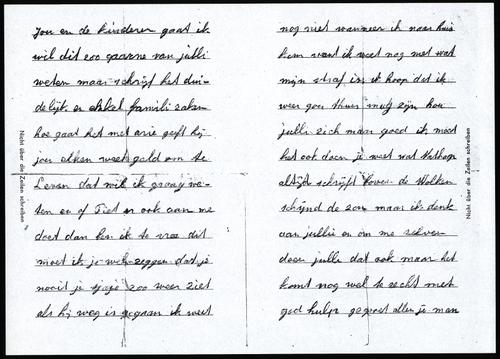 Jou en de kinderen gaat ik
wil dit zoo gaarne van julli
weten maar schrijf het dui-
delijk en enkel famili zaken
hoe gaat het met arie geeft hij
jou elken week geld om te
Leven dat wil ik graag we-
ten en of Piet er ook aan me
doet dan ben ik te vree dit
moet ik je zeggen dat je
nooit je zoo weer ziet
als hij weg is gegaan ik weet
nog niet wanneer ik naar huis
kom want ik weet nog niet wat
mijn straf is ik hoop dat ik
weer gou thuis mag zijn hou
julli zich maar goed ik moet
het ook doen je weet wat
altijd schrijft boven de Wolken
schijnd de zon maar ik denk
aan jullie en om me zelven
doen julli dat ook maar het
komt nog wel te recht met
god hulp gegroet allen je man
Nicht über die Zeilen schreiben
Nicht über die Zeilen schreiben